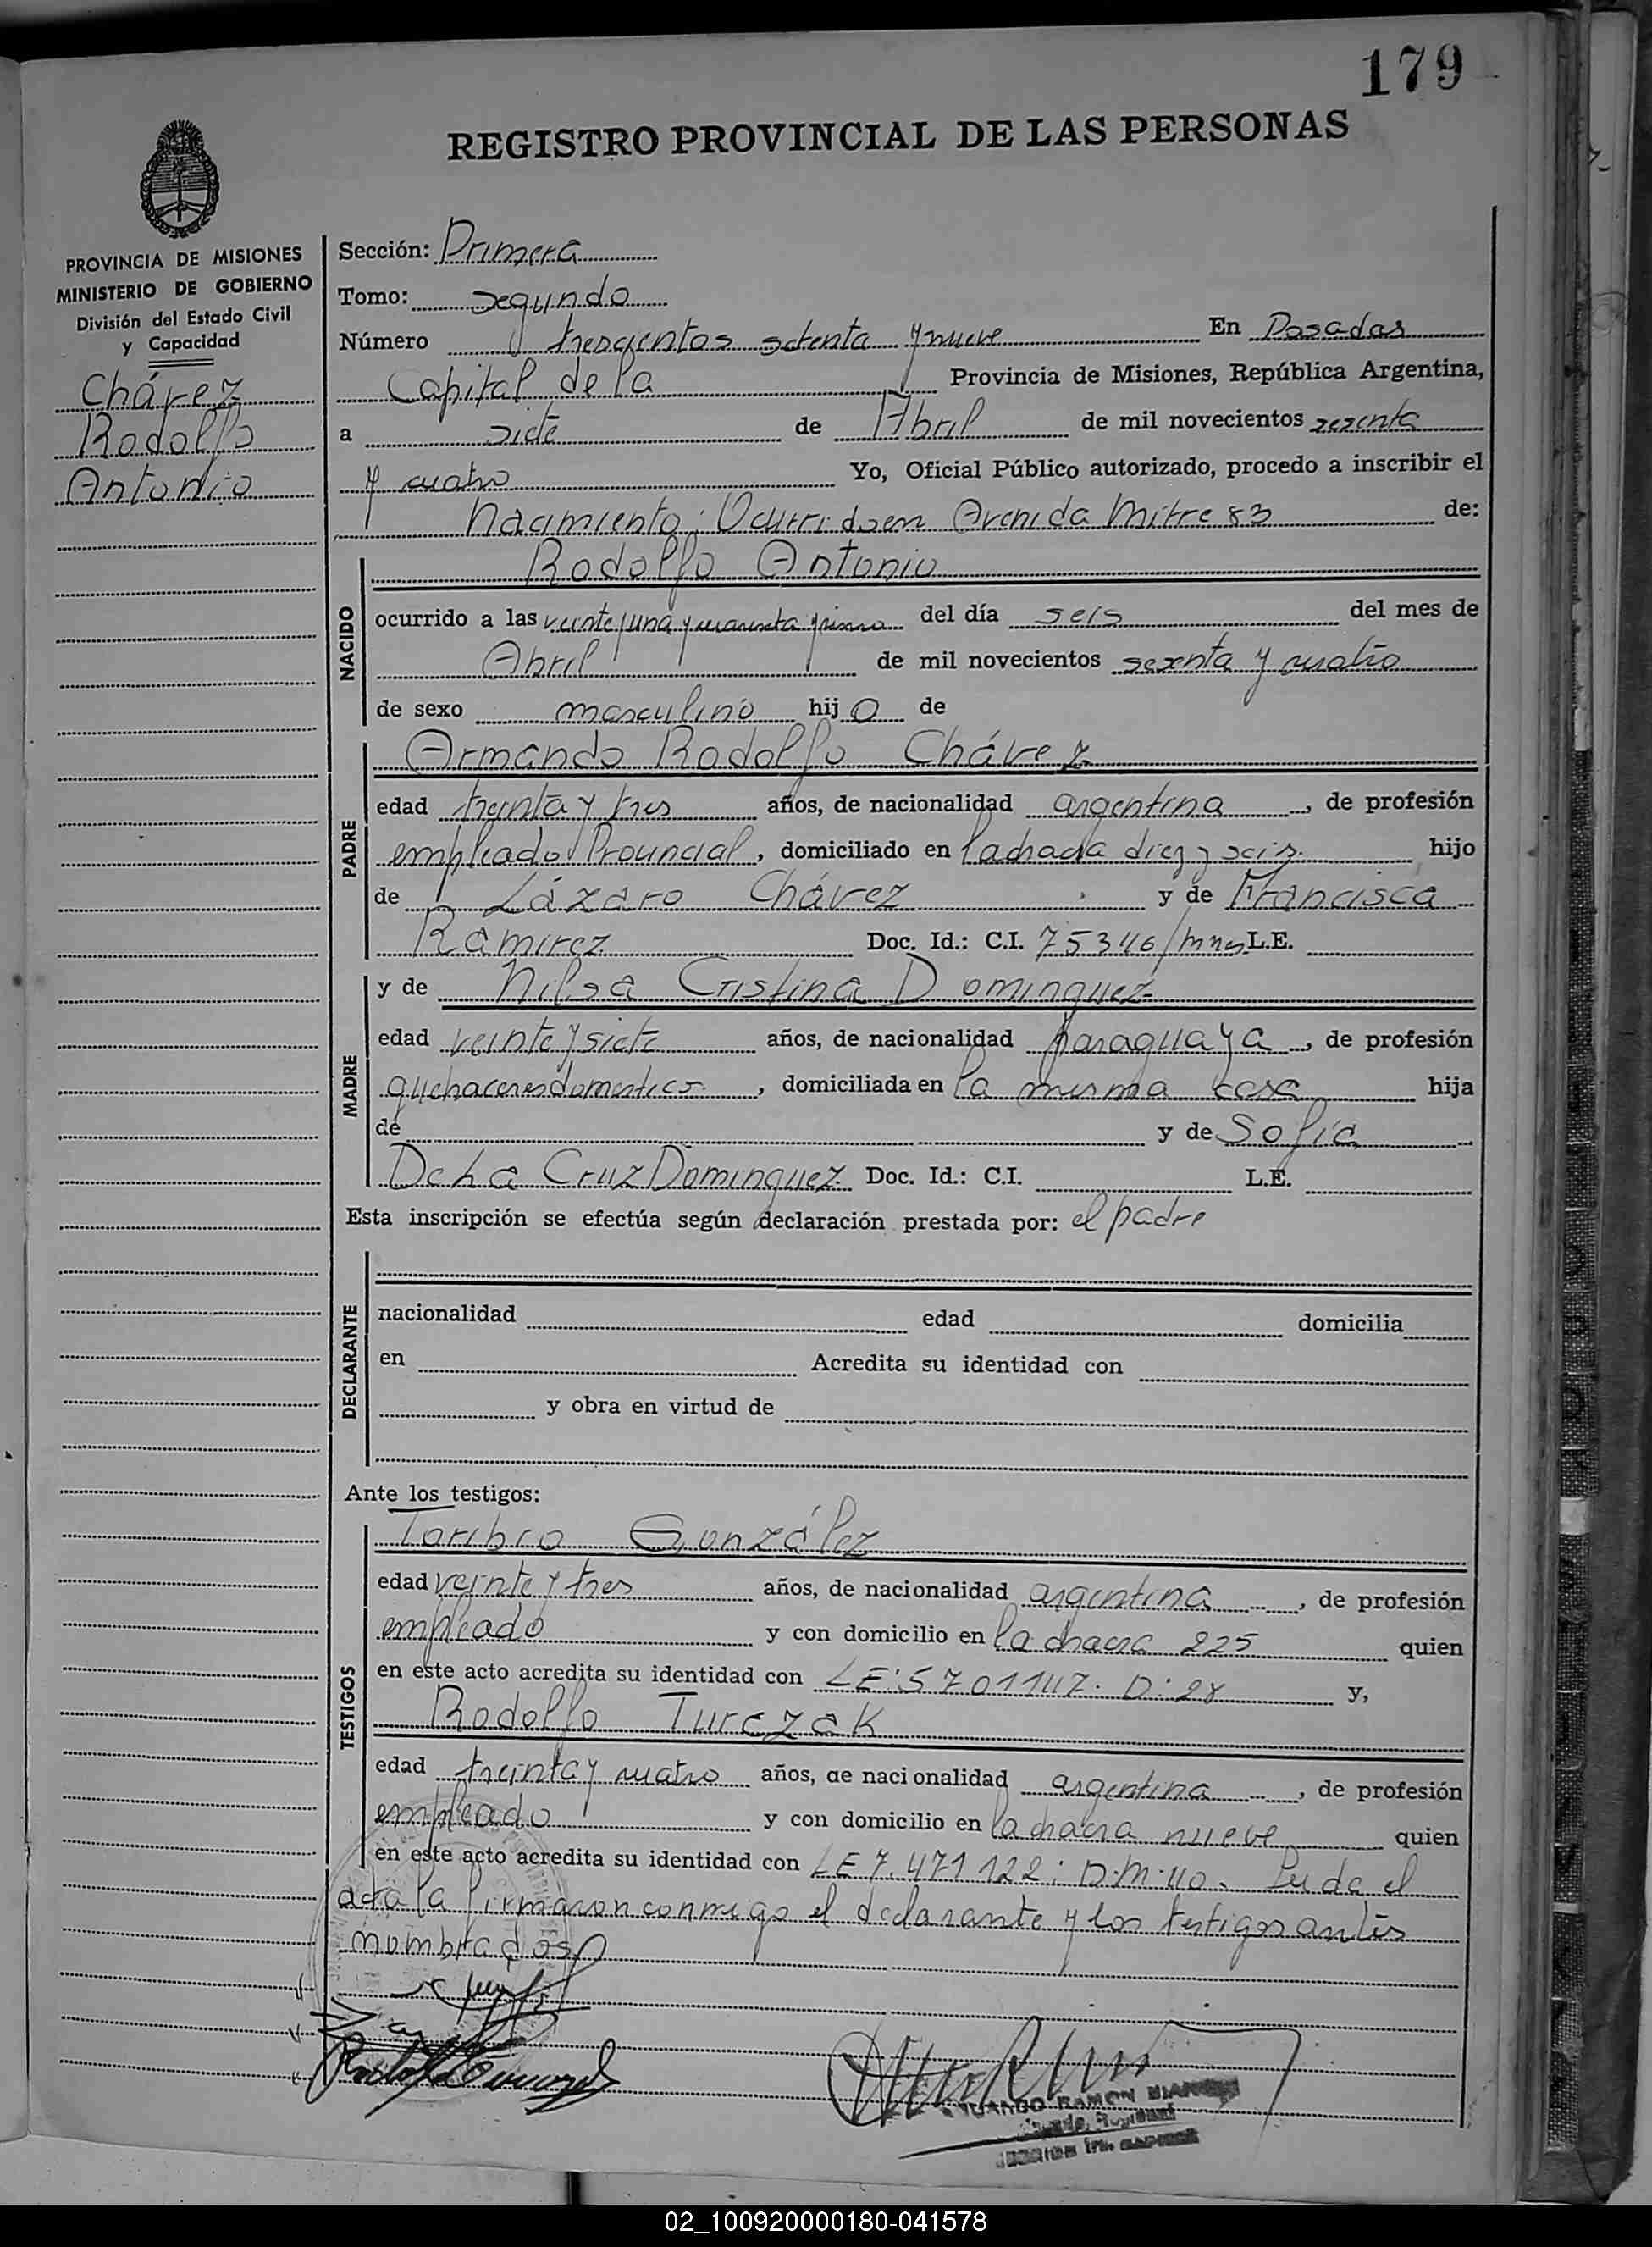 179
REGISTRO PROVINCIAL DE LAS PERSONAS
PROVINCIA DE MISIONES
MINISTERIO DE GOBIERNO
División del Estado Civil
y Capacidad
Chávez
Rodolfo
Antonio
Sección: Primera
Tomo: segundo
Número trescientos setenta y nueve En Posadas
Capital de la Provincia de Misiones, República Argentina,
a siete de Abril de mil novecientos sesenta
y cuatro Yo, Oficial Público autorizado, procedo a inscribir el
nacimiento: Ocurrido en Avenida Mitre 83 de:
NACIDO
Rodolfo Antonio
ocurrido a las veinte y una y cuarenta y cinco del día seis del mes de
Abril de mil novecientos sesenta y cuatro
de sexo masculino hijo de
PADRE
Armando Rodolfo Chávez
edad treinta y tres años, de nacionalidad argentina, de profesión
empleado Provincial, domiciliado en la chacra diez y seis hijo
de Lázaro Chávez y de Francisca
Ramirez Doc. Id.: C.I. 75346/mnes L.E.
MADRE
y de Nilsa Cristina Dominguez
edad veinte y siete años, de nacionalidad paraguaya, de profesión
quehaceres domesticos, domiciliada en la misma casa hija
de y de Sofía
Cruz Dominguez Doc. Id.: C.I. L.E.
Esta inscripción se efectúa según declaración prestada por: el padre
DECLARANTE
nacionalidad edad domicilia
en Acredita su identidad con
y obra en virtud de
Ante los testigos:
TESTIGOS
Toribio González
edad veinte y tres años, de nacionalidad argentina, de profesión
empleado y con domicilio en la chacra 225 quien
en este acto acredita su identidad con LE: 5701147. D: 28 y,
Rodolfo Turczak
edad treinta y cuatro años, de nacionalidad argentina, de profesión
empleado y con domicilio en la chacra nueve quien
en este acto acredita su identidad con LE 7.471122: D.M. 40. Leida el
acta la firmaron conmigo el declarante y los testigos antes
nombrados
RAMON
02_100920000180-041578